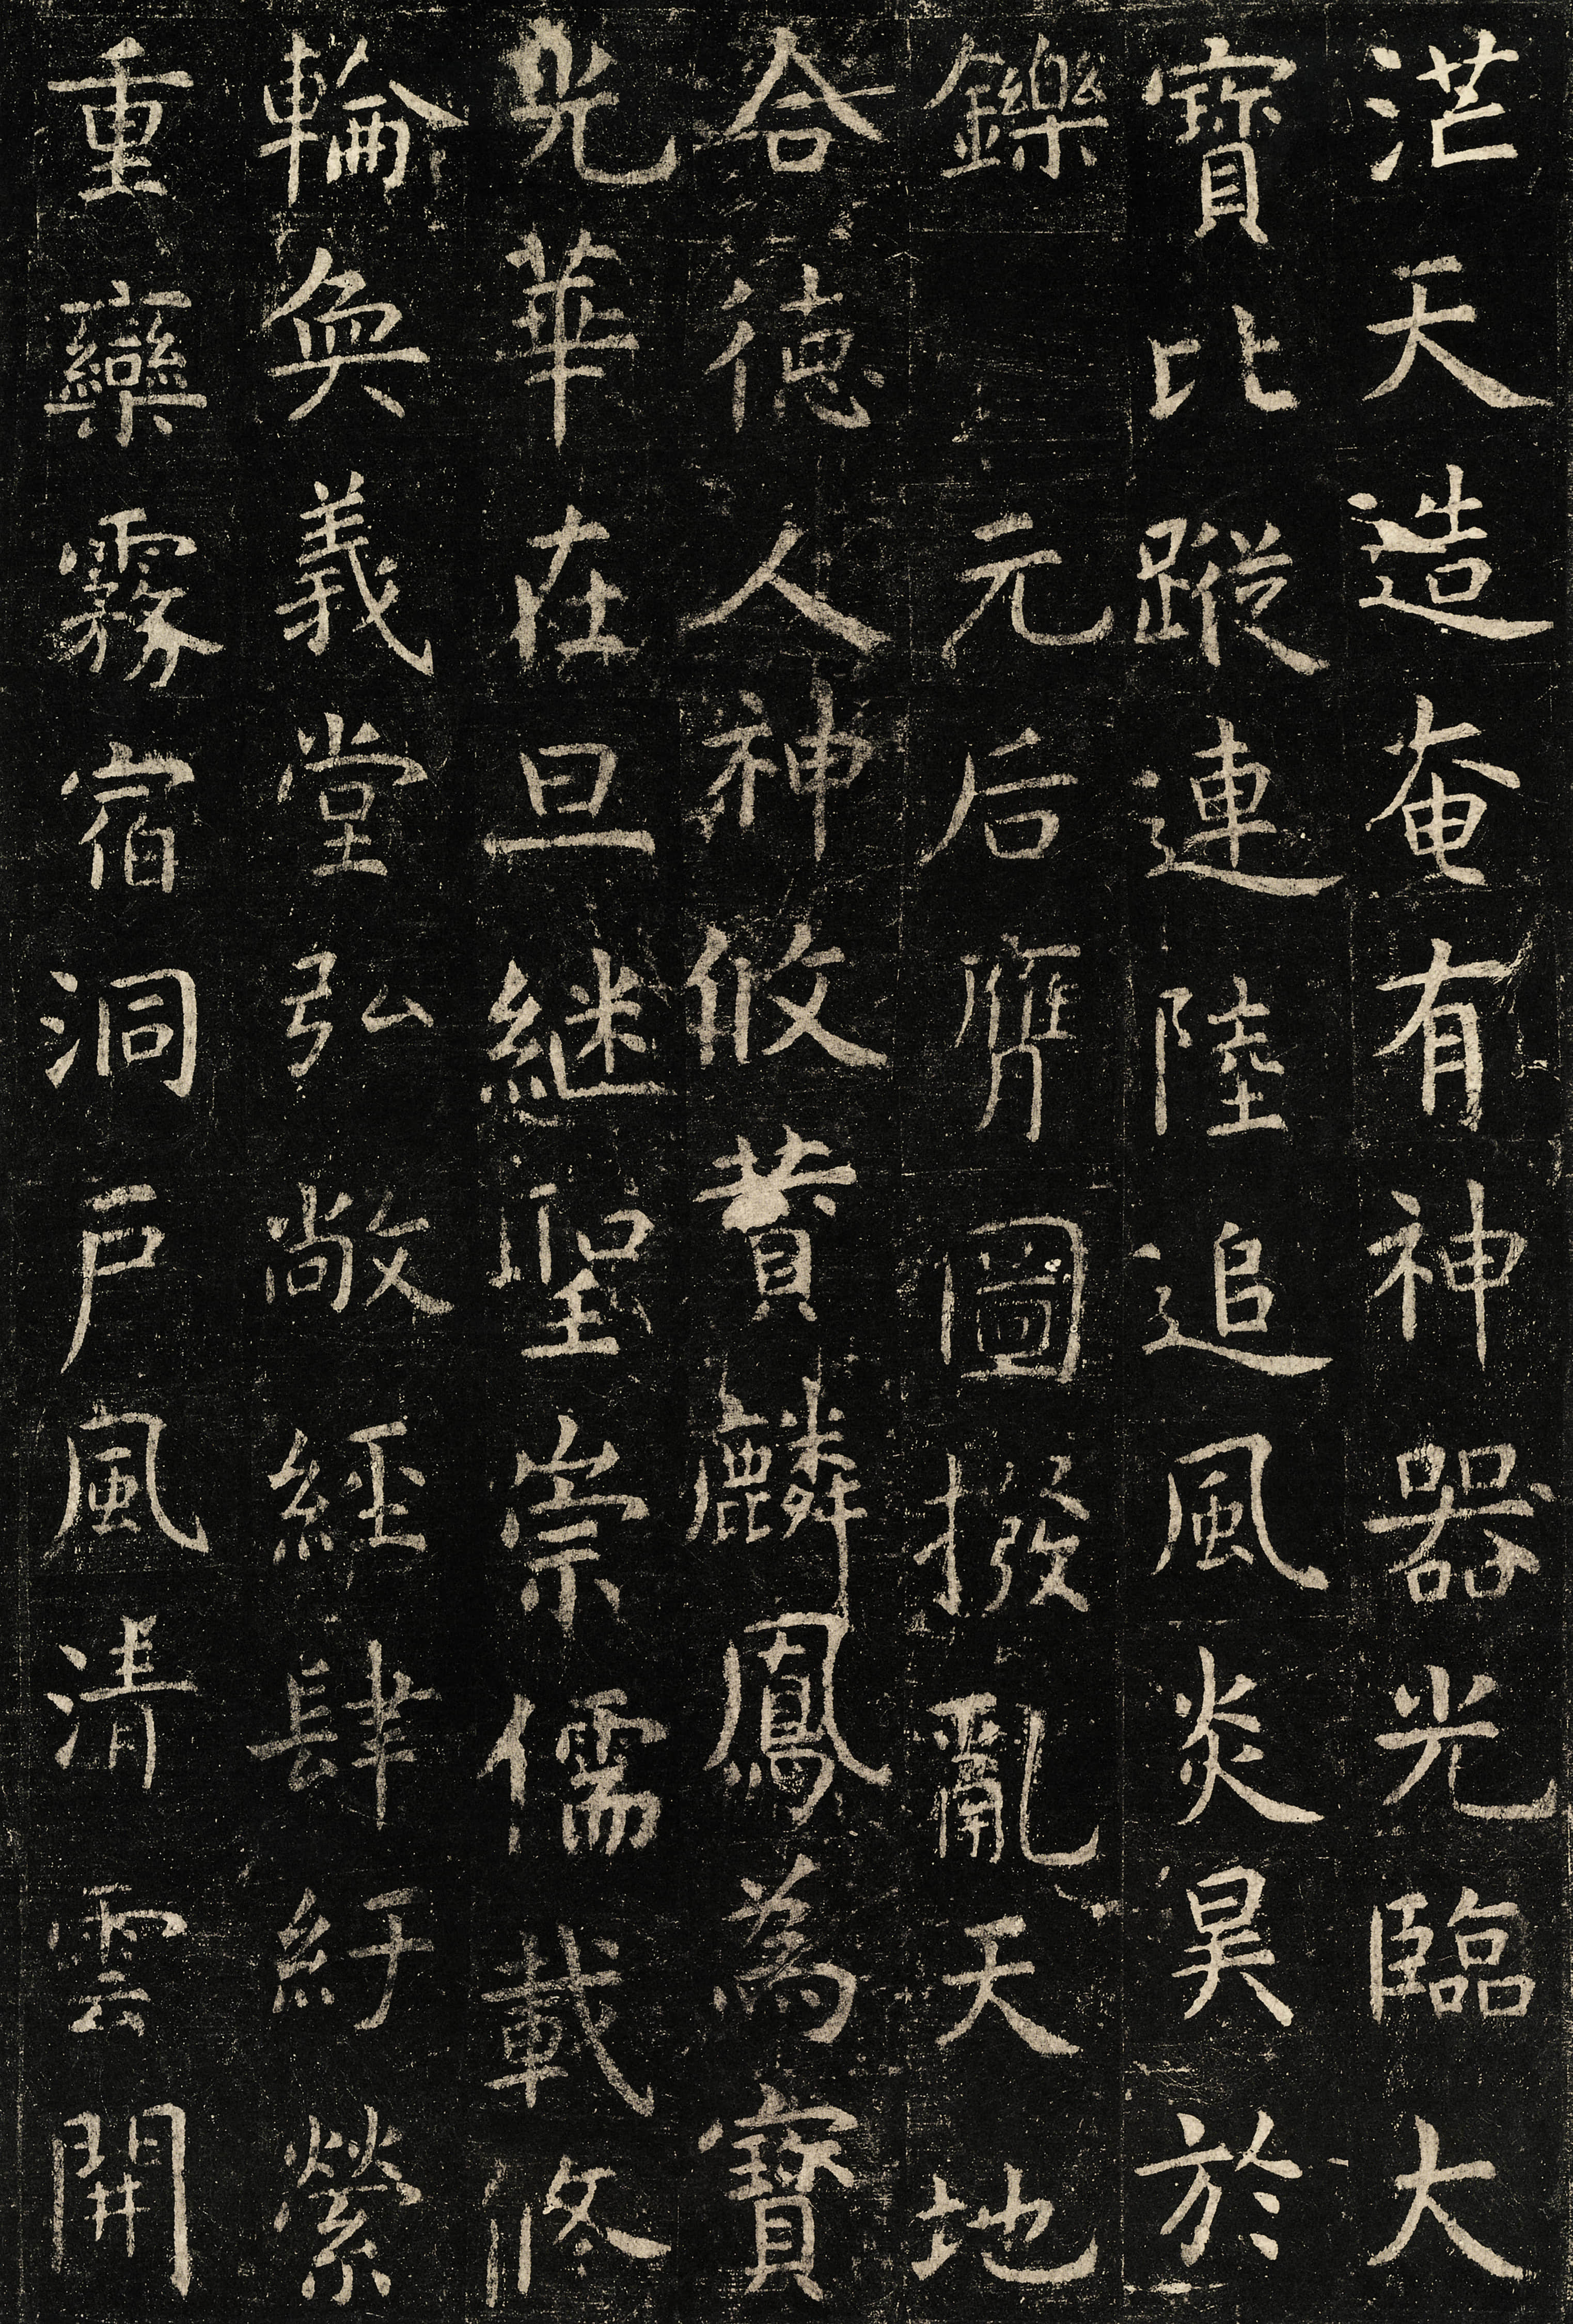 茫天造奄有神器光臨大
寶比蹤連陸追風炎昊於
鑠元后膺圖撥亂天地
合德人神攸贊麟鳳為寶
光華在旦継聖崇儒載修
輪奐義堂弘敞經肆紆縈
重欒霧宿洞戶風清雲開